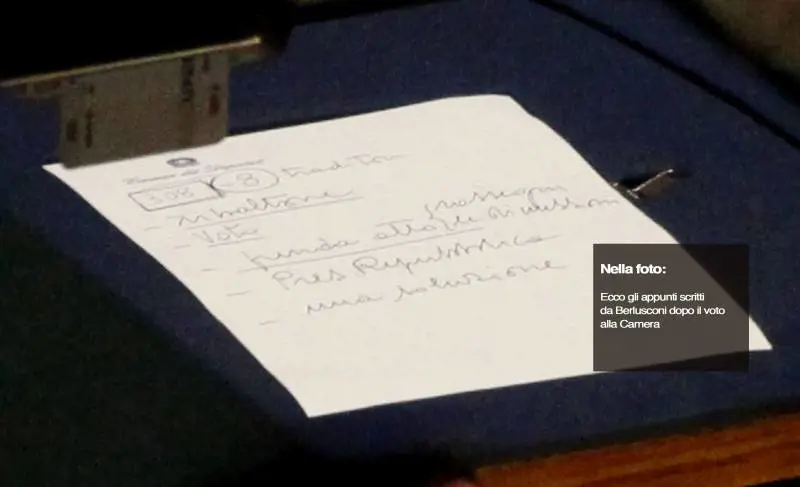 Camera dei Deputati
308 -8 traditori
- ribaltone
- Voto
- prenda atto
- Pres Repubblica
- una soluzione
Nella foto:
Ecco gli appunti scritti
da Berlusconi dopo il voto
alla Camera